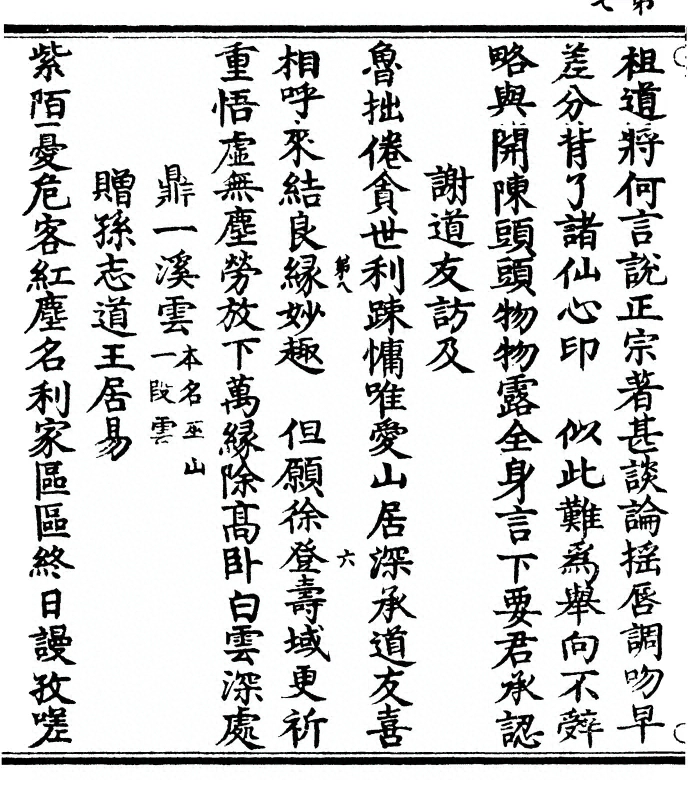 祖道將何言說正宗著甚談論揺唇調吻早
差分背了諸仙心印　似此難爲舉向不辤
略與開陳頭頭物物露全身言下要君承認
謝道友訪及
魯拙倦貪世利踈慵唯愛山居深承道友喜
相呼来結良緣妙趣　但願徐登壽域更祈
第八
六
重悟虛無塵勞放下萬緣除髙卧白雲深處
鼎一溪雲
本名巫山
一段雲
贈孫志道王居易
紫陌憂危客紅塵名利家區區終日謾孜嗟